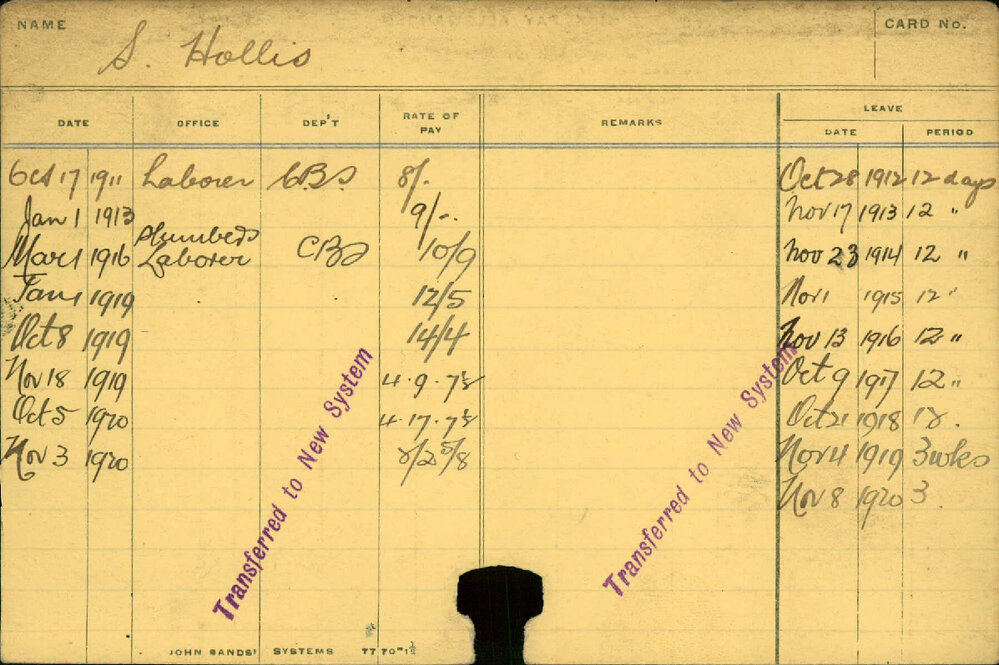 NAME S. Hollis CARD No.
DATE OFFICE DEP'T RATE OF PAY REMARKS LEAVE
DATE PERIOD
Oct 17 1911 Laborer CBS 8/- Oct 28 1912 12 days
Jan 1 1913 9/- Nov 17 1913 12 "
Mar 1 1916 Plumbers Laborer CBS 10/9 Nov 23 1914 12 "
Jan 1 1919 12/5 Nov 1 1915 12 "
Oct 8 1919 14/4 Nov 13 1916 12 "
Nov 18 1919 4.9.7½ Oct 9 1917 12 "
Oct 5 1920 4.17.7½ Oct 21 1918 12.
Nov 3 1920 Nov 4 1919 3 wks
Nov 8 1920 3
Transferred to New System
Transferred to New System
JOHN SANDS' SYSTEMS